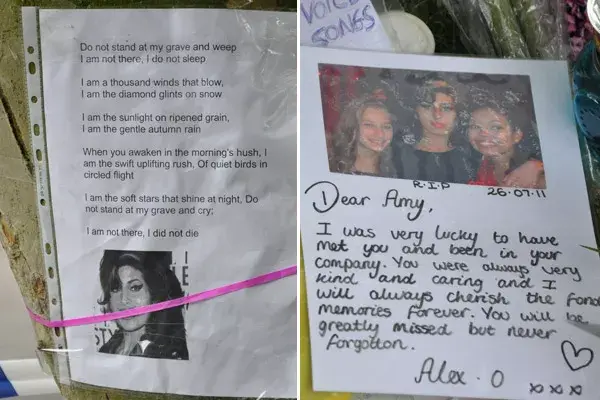 Do not stand at my grave and weep
I am not there, I do not sleep
I am a thousand winds that blow,
I am the diamond glints on snow
I am the sunlight on ripened grain,
I am the gentle autumn rain
When you awaken in the morning's hush, I
am the swift uplifting rush. Of quiet birds in
circled flight
I am the soft stars that shine at night, Do
not stand at my grave and cry;
I am not there, I did not die
VOICE
SONGS
R.I.P
26.07.11
Dear Amy,
I was very lucky to have
met you and been in your
company. You were always very
kind and caring and I
will always cherish the fond
memories forever. You will be
greatly missed but never
forgotton.
Alex. O
xxx